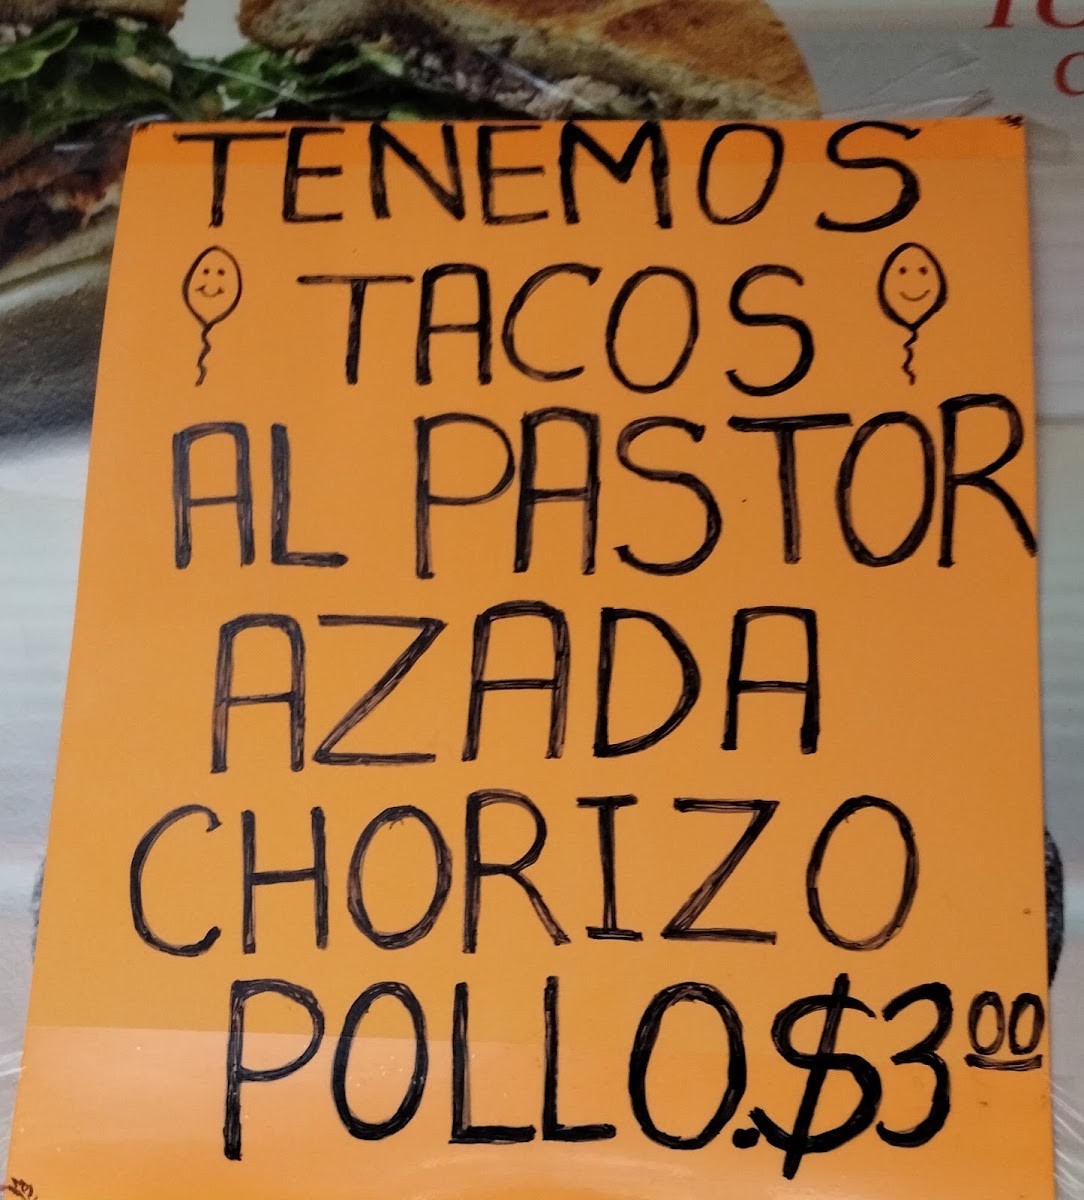 TENEMOS
TACOS
AL PASTOR
AZADA
CHORIZO
POLLO.$3.00